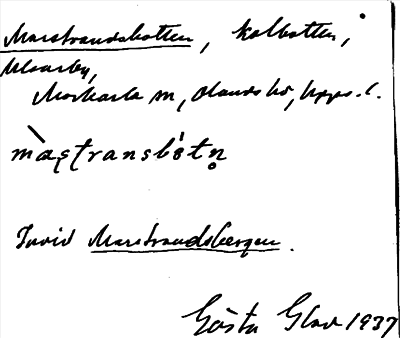 Marstrandsbotten, kolbotten,
Morkarla sn, Olands hd, Upps. l.
màʂtransbòtn̥
Invid Marstrandsbergen.
Gösta Glad 1937